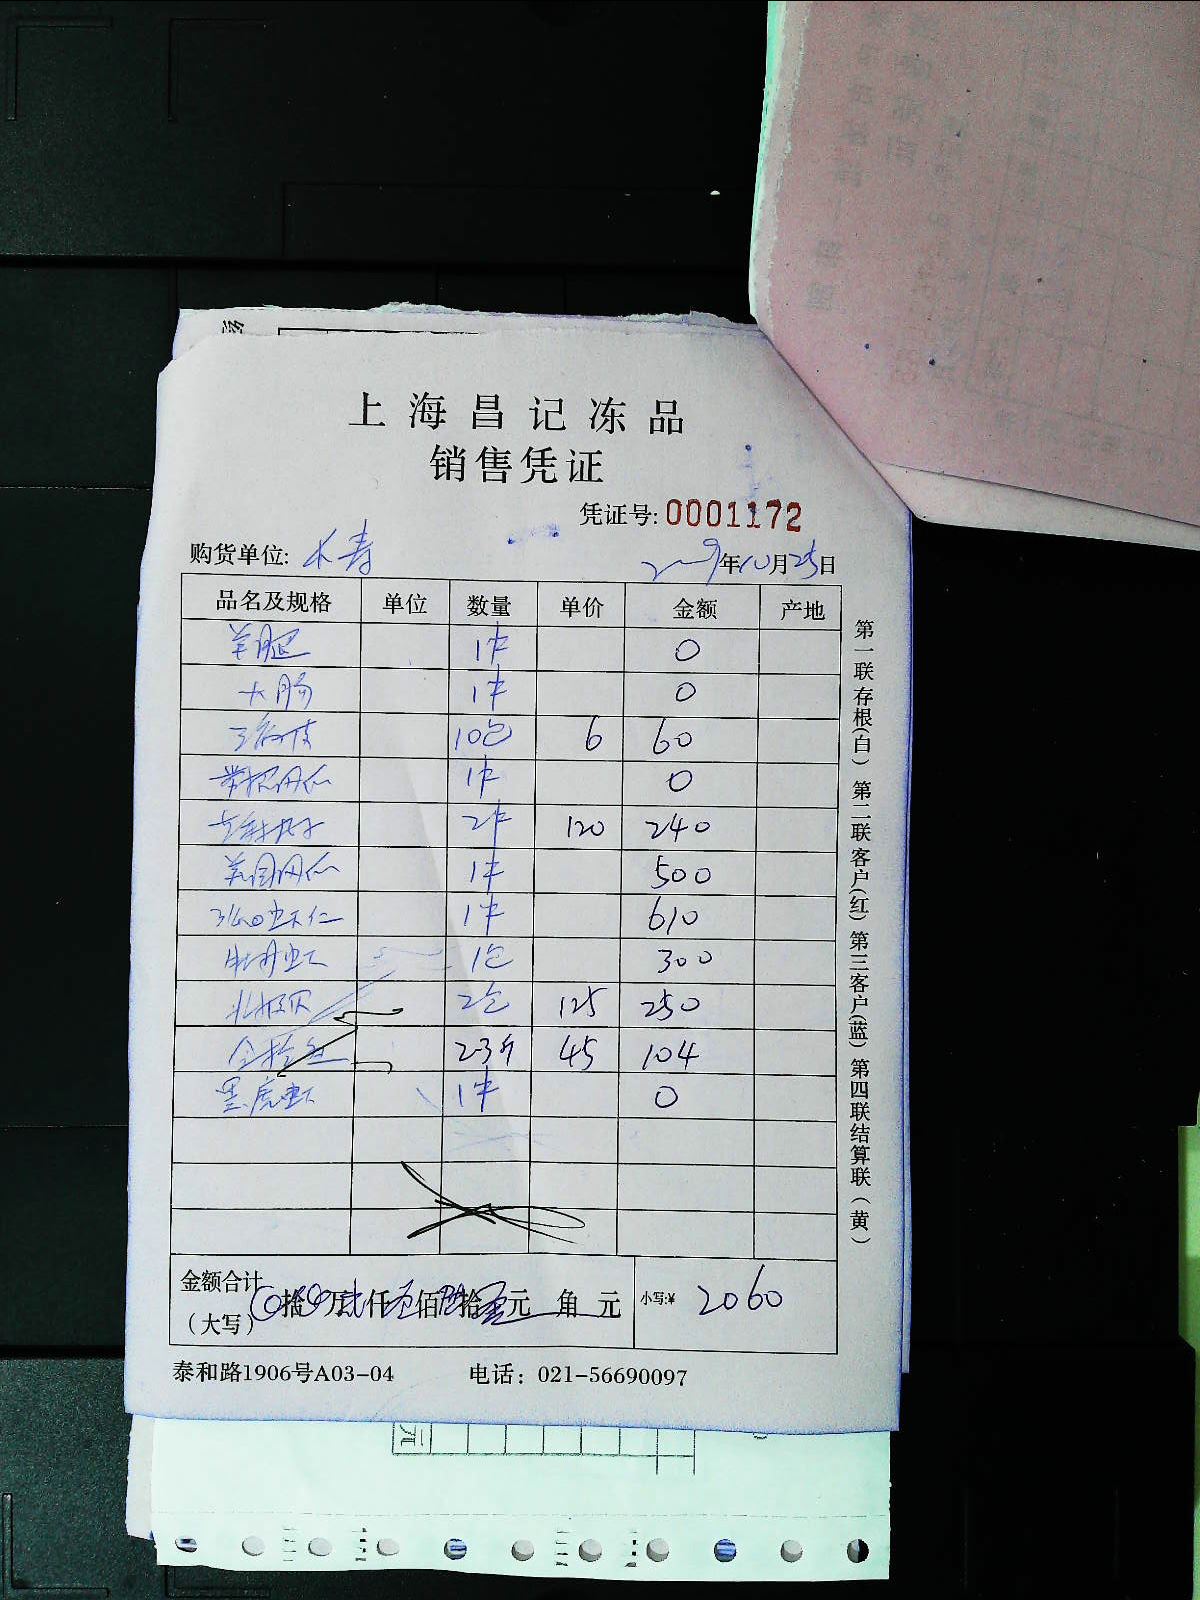 上海昌记冻品
销售凭证
凭证号: 0001172
购货单位:
年10月25日
品名及规格 单位 数量 单价 金额 产地
羊腿 1件 0
大肠 1件 0
10包 6 60
1件 0
2件 120 240
1件 500
虾仁 1件 610
牡丹虾 1包 300
北极贝 2包 125 250
2.3斤 45 104
黑虎虾 1件 0
金额合计
(大写) 拾 万 仟 佰 拾 元 角 元 小写:¥ 2060
泰和路1906号A03-04 电话: 021-56690097
第一联存根(白) 第二联客户(红) 第三客户(蓝) 第四联结算联(黄)
元